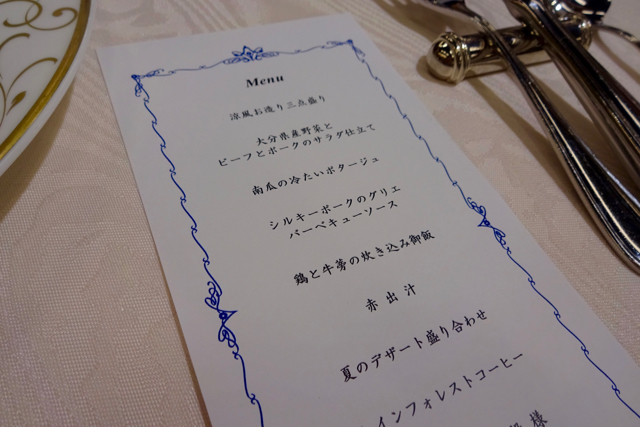 Menu
涼風お造り三点盛り
大分県産野菜と
ビーフとポークのサラダ仕立て
南瓜の冷たいポタージュ
シルキーポークのグリエ
バーベキューソース
鶏と牛蒡の炊き込み御飯
赤出汁
夏のデザート盛り合わせ
インフォレストコーヒー
様